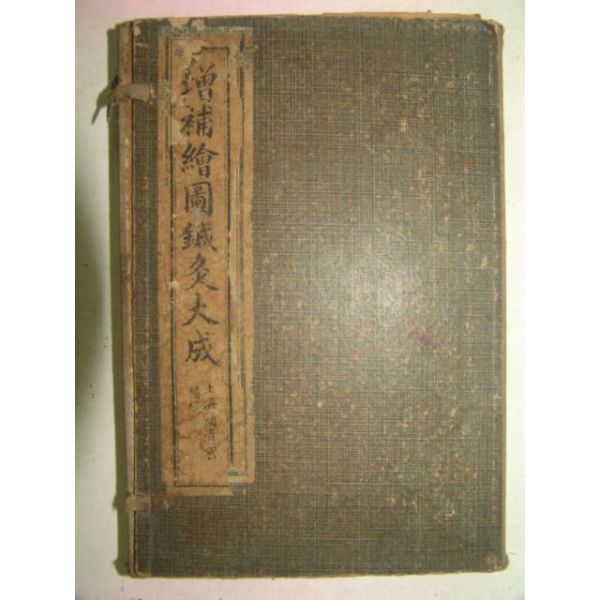 增補繪圖鍼灸大成
上海